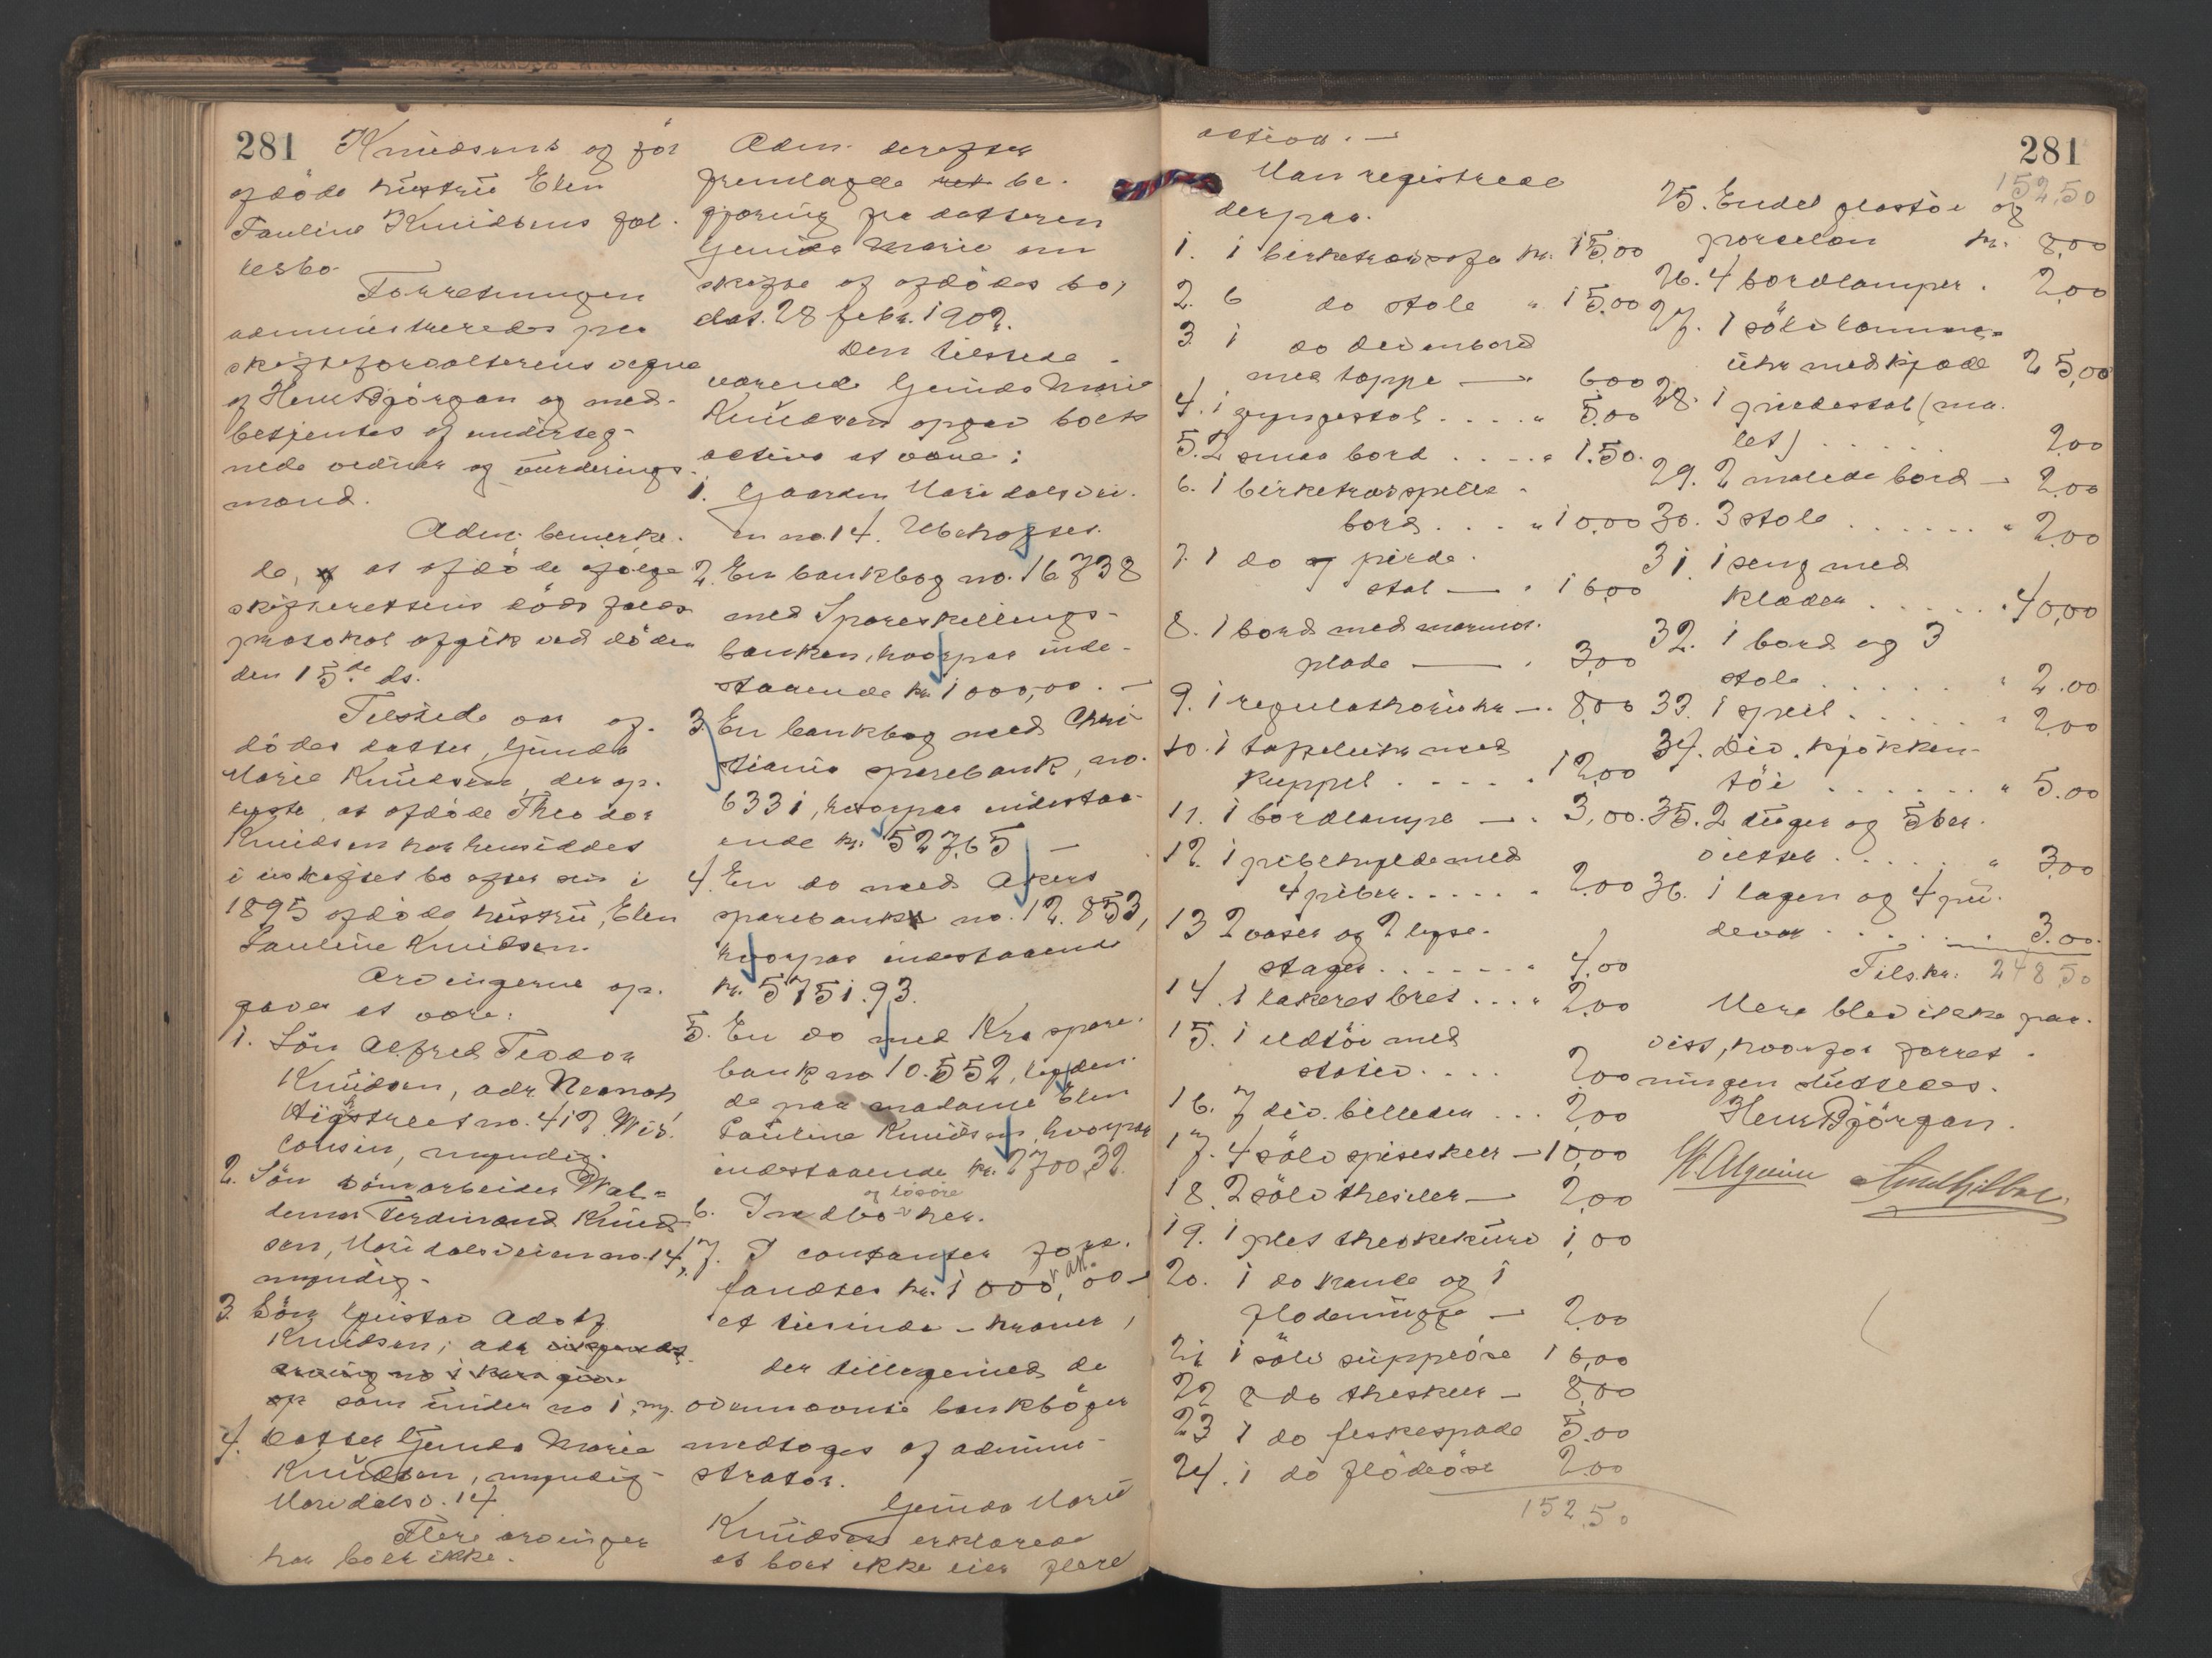 281 Knudsens og før
afdøde hustru Elen
Pauline Knudsens fæl-
lesbo.
Forretningen
administreredes paa
skifteforvalterens vegne
af Henr Bjørgan og med-
betjentes af underteg-
nede vidner og vurderings-
mænd.
Adm. bemerke-
de, at afdøde ifølge
skifterettens døds falds
protokol afgik ved døden
den 15de ds.
Tilstede var af-
dødes datter, Gunda
Marie Knudsen, der op-
lyste, at afdøde Theodor
Knudsen har hensiddet
i uskiftet bo efter sin i
1895 afdøde hustru, Elen
Pauline Knudsen.
Arvingerne op-
gaves at være:
1. Søn Alfred Teodor
Knudsen, adr Neenah
Higstreet no. 412 Wis-
consin, myndig.
2. Søn tømarbeider Wal-
demar Ferdinand Knud-
sen, Maridalsveien no. 14,
myndig-
3 Søn Gustav Adolf
Knudsen; adr
op som under no 1, my.
4. Datter Gunda Marie
Knudsen, myndig-
Maridalsv. 14
Flere arvinger
har boet ikke.
Adm. derefter
fremlagde ret be-
gjæring fra datteren
Gunda Marie om
skifte af afdødes bo,
dat. 28 febr. 1902.
Den tilstede-
værende Gunda Marie
Knudsen opgav boets
activa at være:
1. Gaarden Maridalsvei-
en no. 14. Ubehæftet.
2. En bankbog no. 16738
med Spareskillings-
banken, hvorpaa inde-
staaende kr. 1000,00. —
3. En bankbog med Chri-
stiania sparebank, no.
6331, hvorpaa indestaa-
ende kr. 527,65 —
4. En do med Akers
sparebank no. 12.853,
hvorpaa indestaaende
kr. 5751.93.
5. En do med Kra spare-
bank no 10.552, lyden-
de paa madame Elen
Pauline Knudsen, hvorpaa
indestaaende kr. 2700,32.
6. Indbo og løsøre her.
7. I contanter fore-
fandtes kr. 1000,00 —
et tusinde - kroner,
der tilligemed de
ovennævnte bankbøger
medtoges af admini-
strator.
Gunda Marie
Knudsen erklærede
at boet ikke eier flere
activa. —
Man registrede
derpaa.
1. 1 birketræssofa kr. 15,00
2. 6 do stole " 15,00
3 1 do divanbord
med tæppe — " 6,00
4. 1 gyngestol . . . . " 5.00
5. 2 smaa bord . . . . " 1.50.
6. 1 birketræsspille-
bord . . . " 10,00
7. 1 do pirde-
stal — " 16,00
8. 1 bord med marmor-
plade — " 3,00
9. 1 regulatoruhr — . 8,00
10. 1 taffeluhr med
kuppel . . . . . . 12,00
11. 1 bordlampe — . 3,00.
12. 1 pibehylde med
4 piber . . . . . " 2,00
13 2 vaser og 2 lyse-
stager . . . . . . " 4,00
14. 1 lakeret bret . . . " 2,00
15. 1 ildtøi med
stativ . . . . 2,00
16. 7 div. billeder . . . 2,00
17. 4 sølv spiseskeer — 10,00
18. 2 sølv theskeer — 2,00
19. 1 plet theskekurv 1,00
20. 1 do kande og 1
flødemugge — 2,00
21 1 sølv suppeøse 16,00
22 8 do theskeer — 8,00
23 1 do fiskespade 5.00
24. 1 do flødeøse 2.00
152,50
281
152,50
25. Endel glastøi og
porcelæn kr. 8,00
26. 4 bordlamper . 2,00
27. 1 sølv lomme-
uhr med kjæde 25,00
28. 1 piedestal (ma-
let) . . . . . . 2,00
29. 2 malede bord — 2,00
30. 3 stole . . . . . . " 2,00
31. 1 seng med
klæder . . . . . . " 40,00
32. 1 bord og 3
stole . . . . . . " 2.00
33. 1 speil . . . . . . " 2,00
34. Div. kjøkken-
tøi . . . . . . . " 5.00
35. 2 duger og 5 ser-
vietter . . . . . . " 3.00
36. 1 lagen og 4 pu-
devar . . . . . . 3.00.
Tils. kr. 248,50
Mere blev ikke paa-
vist, hvorfor forret-
ningen sluttedes.
Henr Bjørgan.